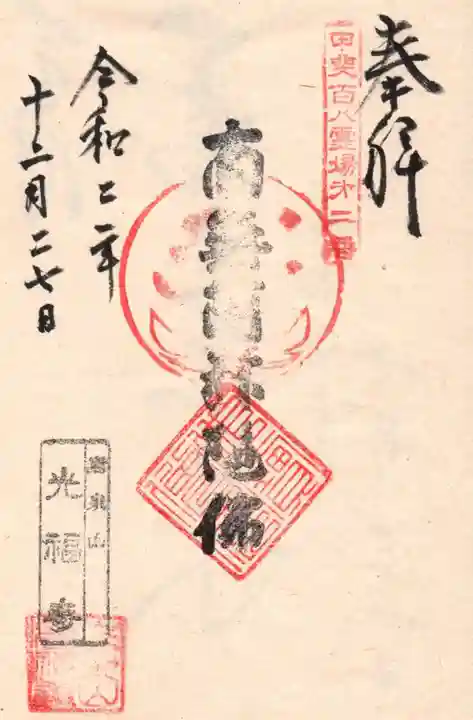 奉拝
甲斐百八霊場第二番
南無阿弥陀佛
令和二年
十二月二七日
山
光福寺